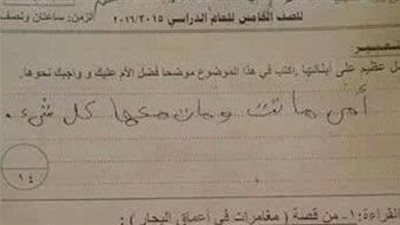 للصف الخامس للعام الدراسي ٢٠١٦/٢٠١٥ الزمن: ساعتان ونصف
عبير
ل عظيم على أبنائها، اكتب في هذا الموضوع موضحا فضل الأم عليك وواجبك نحوها.
أمي ماتت ومات معها كل شيء.
١٤
القراءة: ١- من قصة ( مغامرات في أعماق البحار ) :